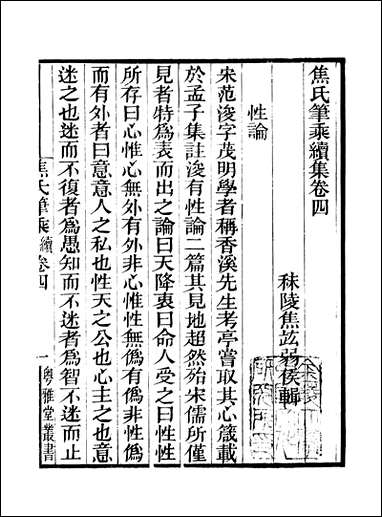 焦氏筆乘續集卷四
秣陵焦竑弱侯輯
性論
宋范浚字茂明學者稱香溪先生考亭嘗取其心箴載
於孟子集註浚有性論二篇其見地超然殆宋儒所僅
見者特為表而出之論曰天降衷曰命人受之曰性性
所存曰心惟心無外有外非心惟性無偽有偽非性偽
而有外者曰意意人之私也性天之公也心主之也意
迷之也迷而不復者為愚知而不迷者為智不迷而止
焦氏筆乘續卷四
一
粵雅堂叢書